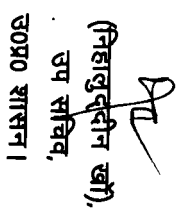 (निहालुद्दीन खाँ),
उप सचिव,
उ०प्र० शासन।